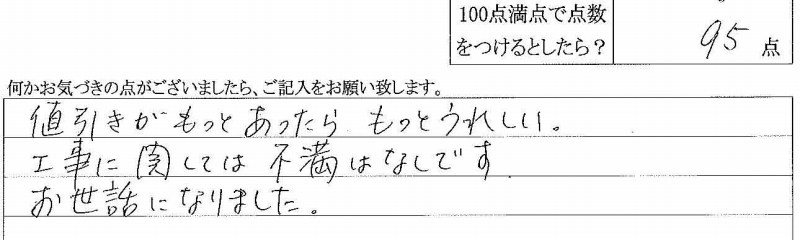 100点満点で点数
をつけるとしたら？
95 点
何かお気づきの点がございましたら、ご記入をお願い致します。
値引きがもっとあったら もっとうれしい。
工事に関しては不満はなしです
お世話になりました。